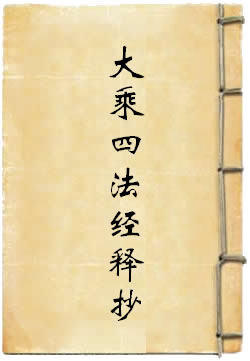 大乘四法经释抄